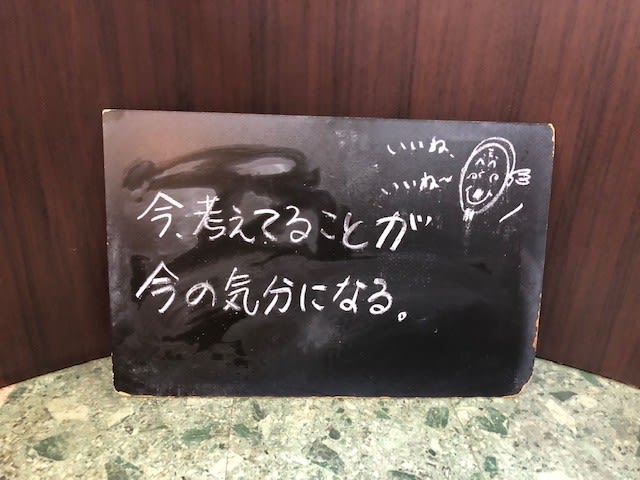 いいね、
いいね~
今、考えてることが
今の気分になる。